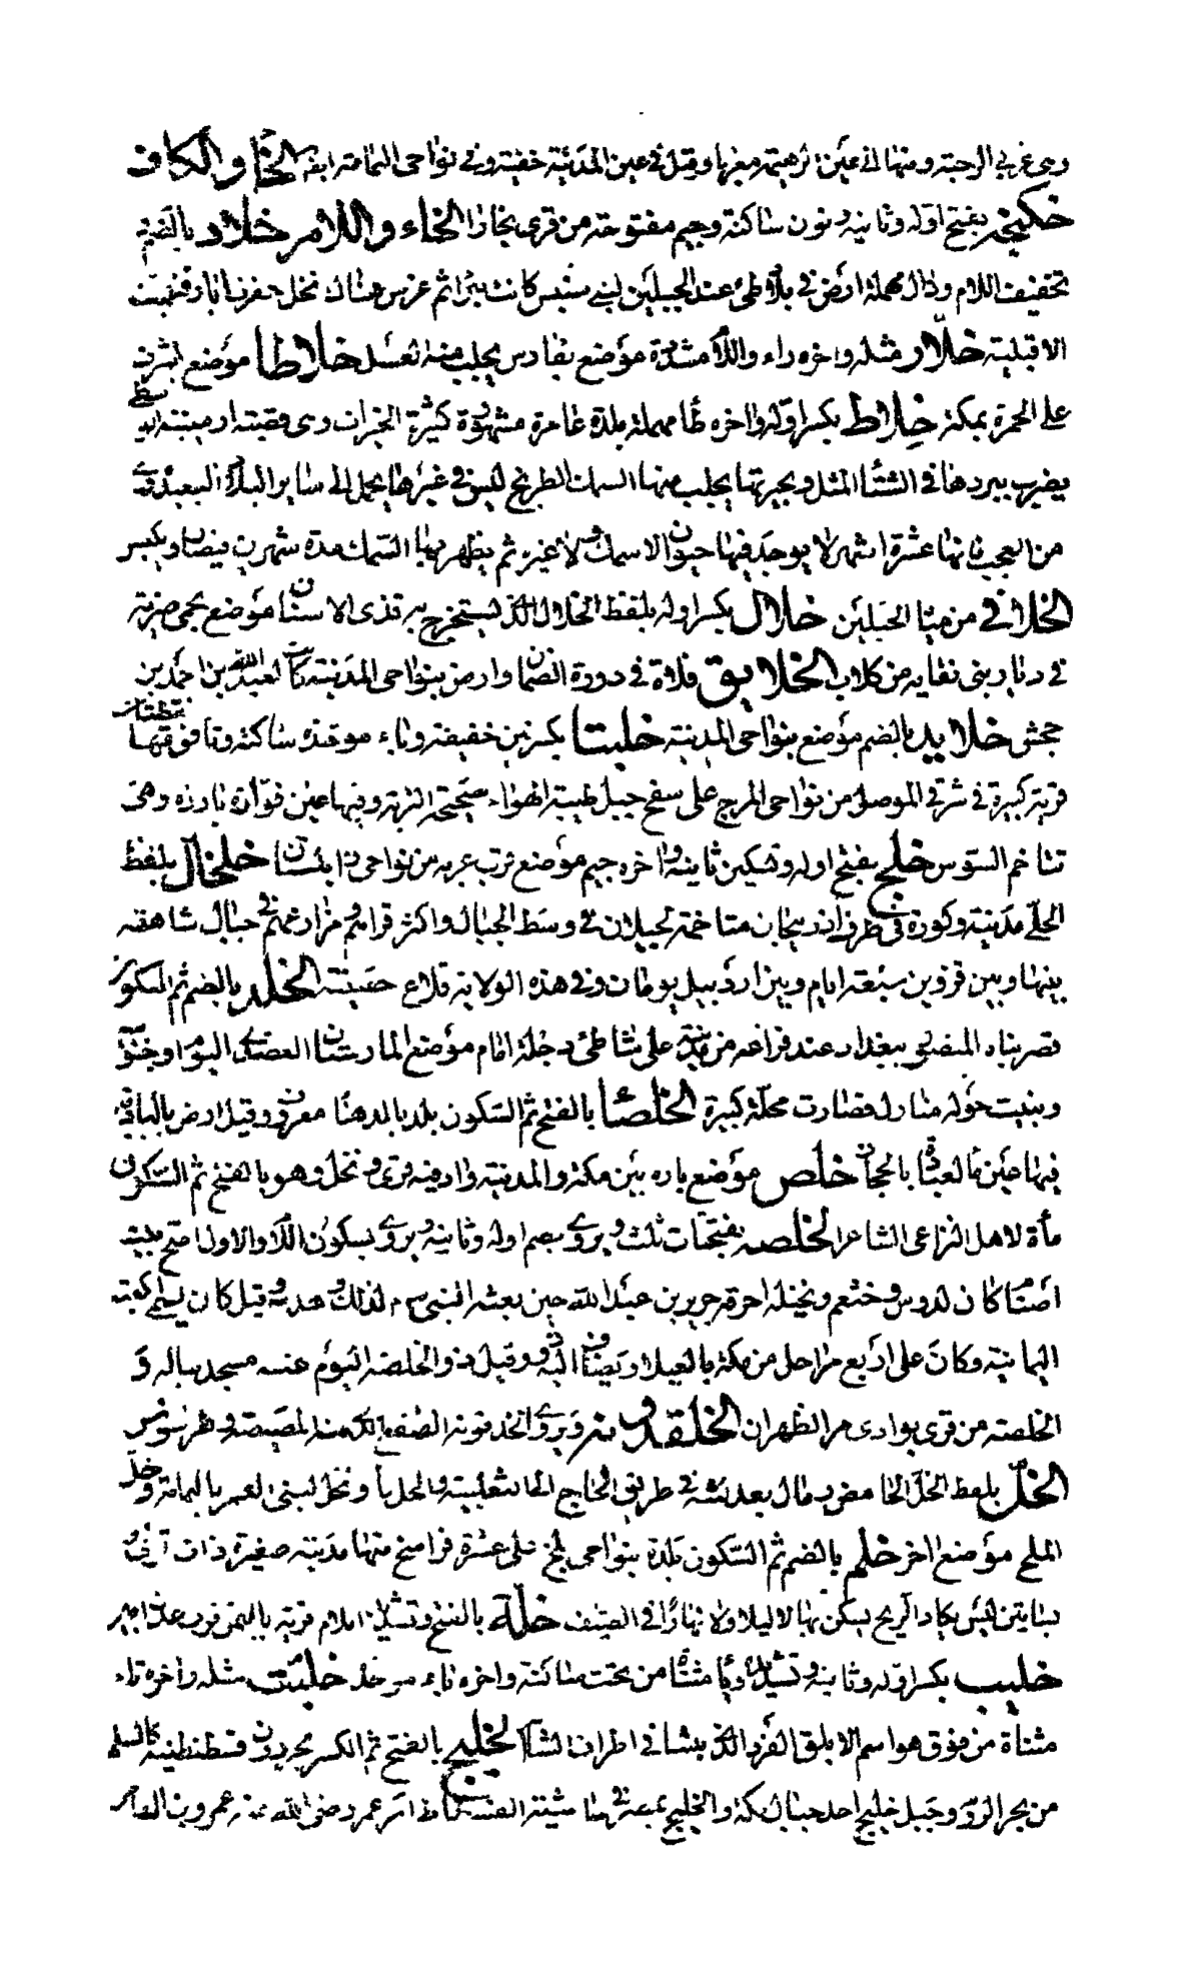 وهي غربي الرحبة ومنها الى عين مغربا وقيل في عين المدينة خفية وفي نواحي اليمامة ايضا الخاء والكاف
خكنجه بفتح اوله وثانيه ونون ساكنة وجيم مفتوحة من قرى بخارا الخاء واللام خلاد بالضم
تخفيف اللام ودال مهملة ارض في بلاد طيء عند الجبلين لبني سنبس كانت بئرا ثم غرس هناك نخل وحفرت ابار فسميت
الاقيلبة خلار مثله واخره راء واللام مشددة موضع بفارس يجلب منه العسل خلاطا موضع يشرف
على الجمرة بمكة خلاط بكسر اوله واخره طا مهملة بلدة عامرة مشهورة كثيرة الخيرات وهي قصبة ارمينية الوسطى
يضرب ببردها في الشتا المثل وبحيرتها يجلب منها السمك الطريخ ليس في غيرها يحمل الى ساير البلاد البعيدة
من العجب انها عشرة اشهر لا يوجد فيها حيوان ولا سمك ولا غيره ثم يظهر بها السمك مدة شهرين
الخلاقي من مياه الجبلين خلال بكسر اوله بلفظ الخلال الذي يستخرج به قذى الاسنان موضع بحمى ضرية
في ديار بني نفاية من كلاب الخلايق فلاة في ذروة الصمان وارض بنواحي المدينة كانت لعبد الله بن احمد بن
جحش خلايد بالضم موضع بنواحي المدينة خلبتا بكسرتين خفيفة وباء موحدة ساكنة وتا فوقها نقطتان
قرية كبيرة في شرقي الموصل من نواحي المرج على سفح جبل طيبة الهواء صحيحة التربة وفيها عين فوارة باردة وهي
تتاخم السوس خلج بفتح اوله وتسكين ثانيه واخره جيم موضع قرب غزنه من نواحي زابلستان خلخال بلفظ
الحلي مدينة وكورة في طرف اذربيجان متاخمة لجيلان في وسط الجبال واكثر قراهم ومزارعهم في جبال شاهقة
بينها وبين قزوين سبعة ايام وبين اردبيل يومان وفي هذه الولاية قلاع حصينة الخلد بالضم ثم السكون
قصر بناه المنصور ببغداد عند فراغه من مدينته على شاطئ دجلة امام موضع المارستان العضدي اليوم او جنوبيه
وبنيت حوله منازل فصارت محلة كبيرة الخلصا بالفتح ثم السكون بلد بالدهنا معروف وقيل ارض بالبادية
فيها عين ما لعبادة بالحجاز خلص موضع بارة بين مكة والمدينة واد فيه قرى ونخل وهو بالفتح ثم السكون
مأة لاهل الخزاعي الشاعر الخلصة بفتحات ثلث ويروى بضم اوله وثانيه ويروى بسكون اللام والاول اصح بيت
اصنام كان لدوس وخثعم وبجيلة احرقه جرير بن عبد الله حين بعثه النبي صم لذلك وهدمه وقيل كان يسمى كعبة
اليمانية وكان على اربع مراحل من مكة بالعبلا وبيضا وقيل ذو الخلصة اليوم عتبة مسجد تبالة و
الخلصة من قرى بوادي مر الظهران الخلقدونه ويروى الخذقونة الصقع الذي منه المصيصة وطرسوس
الخل بلفظ الخل الحامض رمال بعد لينه في طريق الحاج الى الثعلبية ونخل لبني العنبر باليمامة وخل
الملح موضع اخر خلم بالضم ثم السكون بلدة بنواحي بلخ على عشرة فراسخ منها مدينة صغيرة ذات
بساتين ليس يكاد الريح يسكن بها لا ليلا ولا نهارا في الصيف خلة بالفتح وتشديد اللام قرية باليمن قرب عدن ابين
خليب بكسر اوله وثانيه وتشديده ويا مثناة من تحت ساكنة واخره باء موحدة خليت مثله واخره تاء
مثناة من فوق هو اسم الابلق الفرد الذي بتيما في اطراف الشام الخليج بالفتح ثم الكسر بحر دون قسطنطنية
من بحر الروم وجبل خليج احد جبال مكة والخليج بمصر امر عمر رضى الله عنه عمرو بن العاص